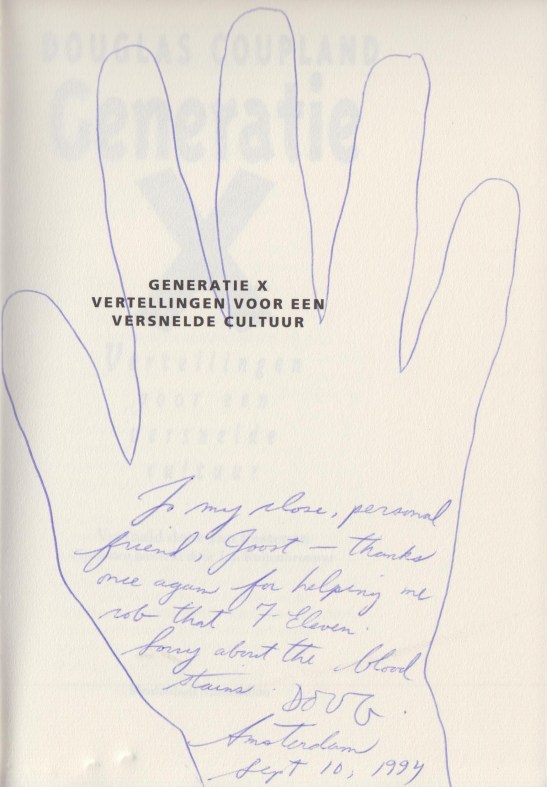 DOUGLAS COUPLAND
Generatie
X
GENERATIE X
VERTELLINGEN VOOR EEN
VERSNELDE CULTUUR
Vertellingen
voor een
versnelde
cultuur
To my close, personal
friend, Joost — thanks
once again for helping me
rob that 7-Eleven.
Sorry about the blood
stains. DOUG.
Amsterdam
Sept 10, 1994